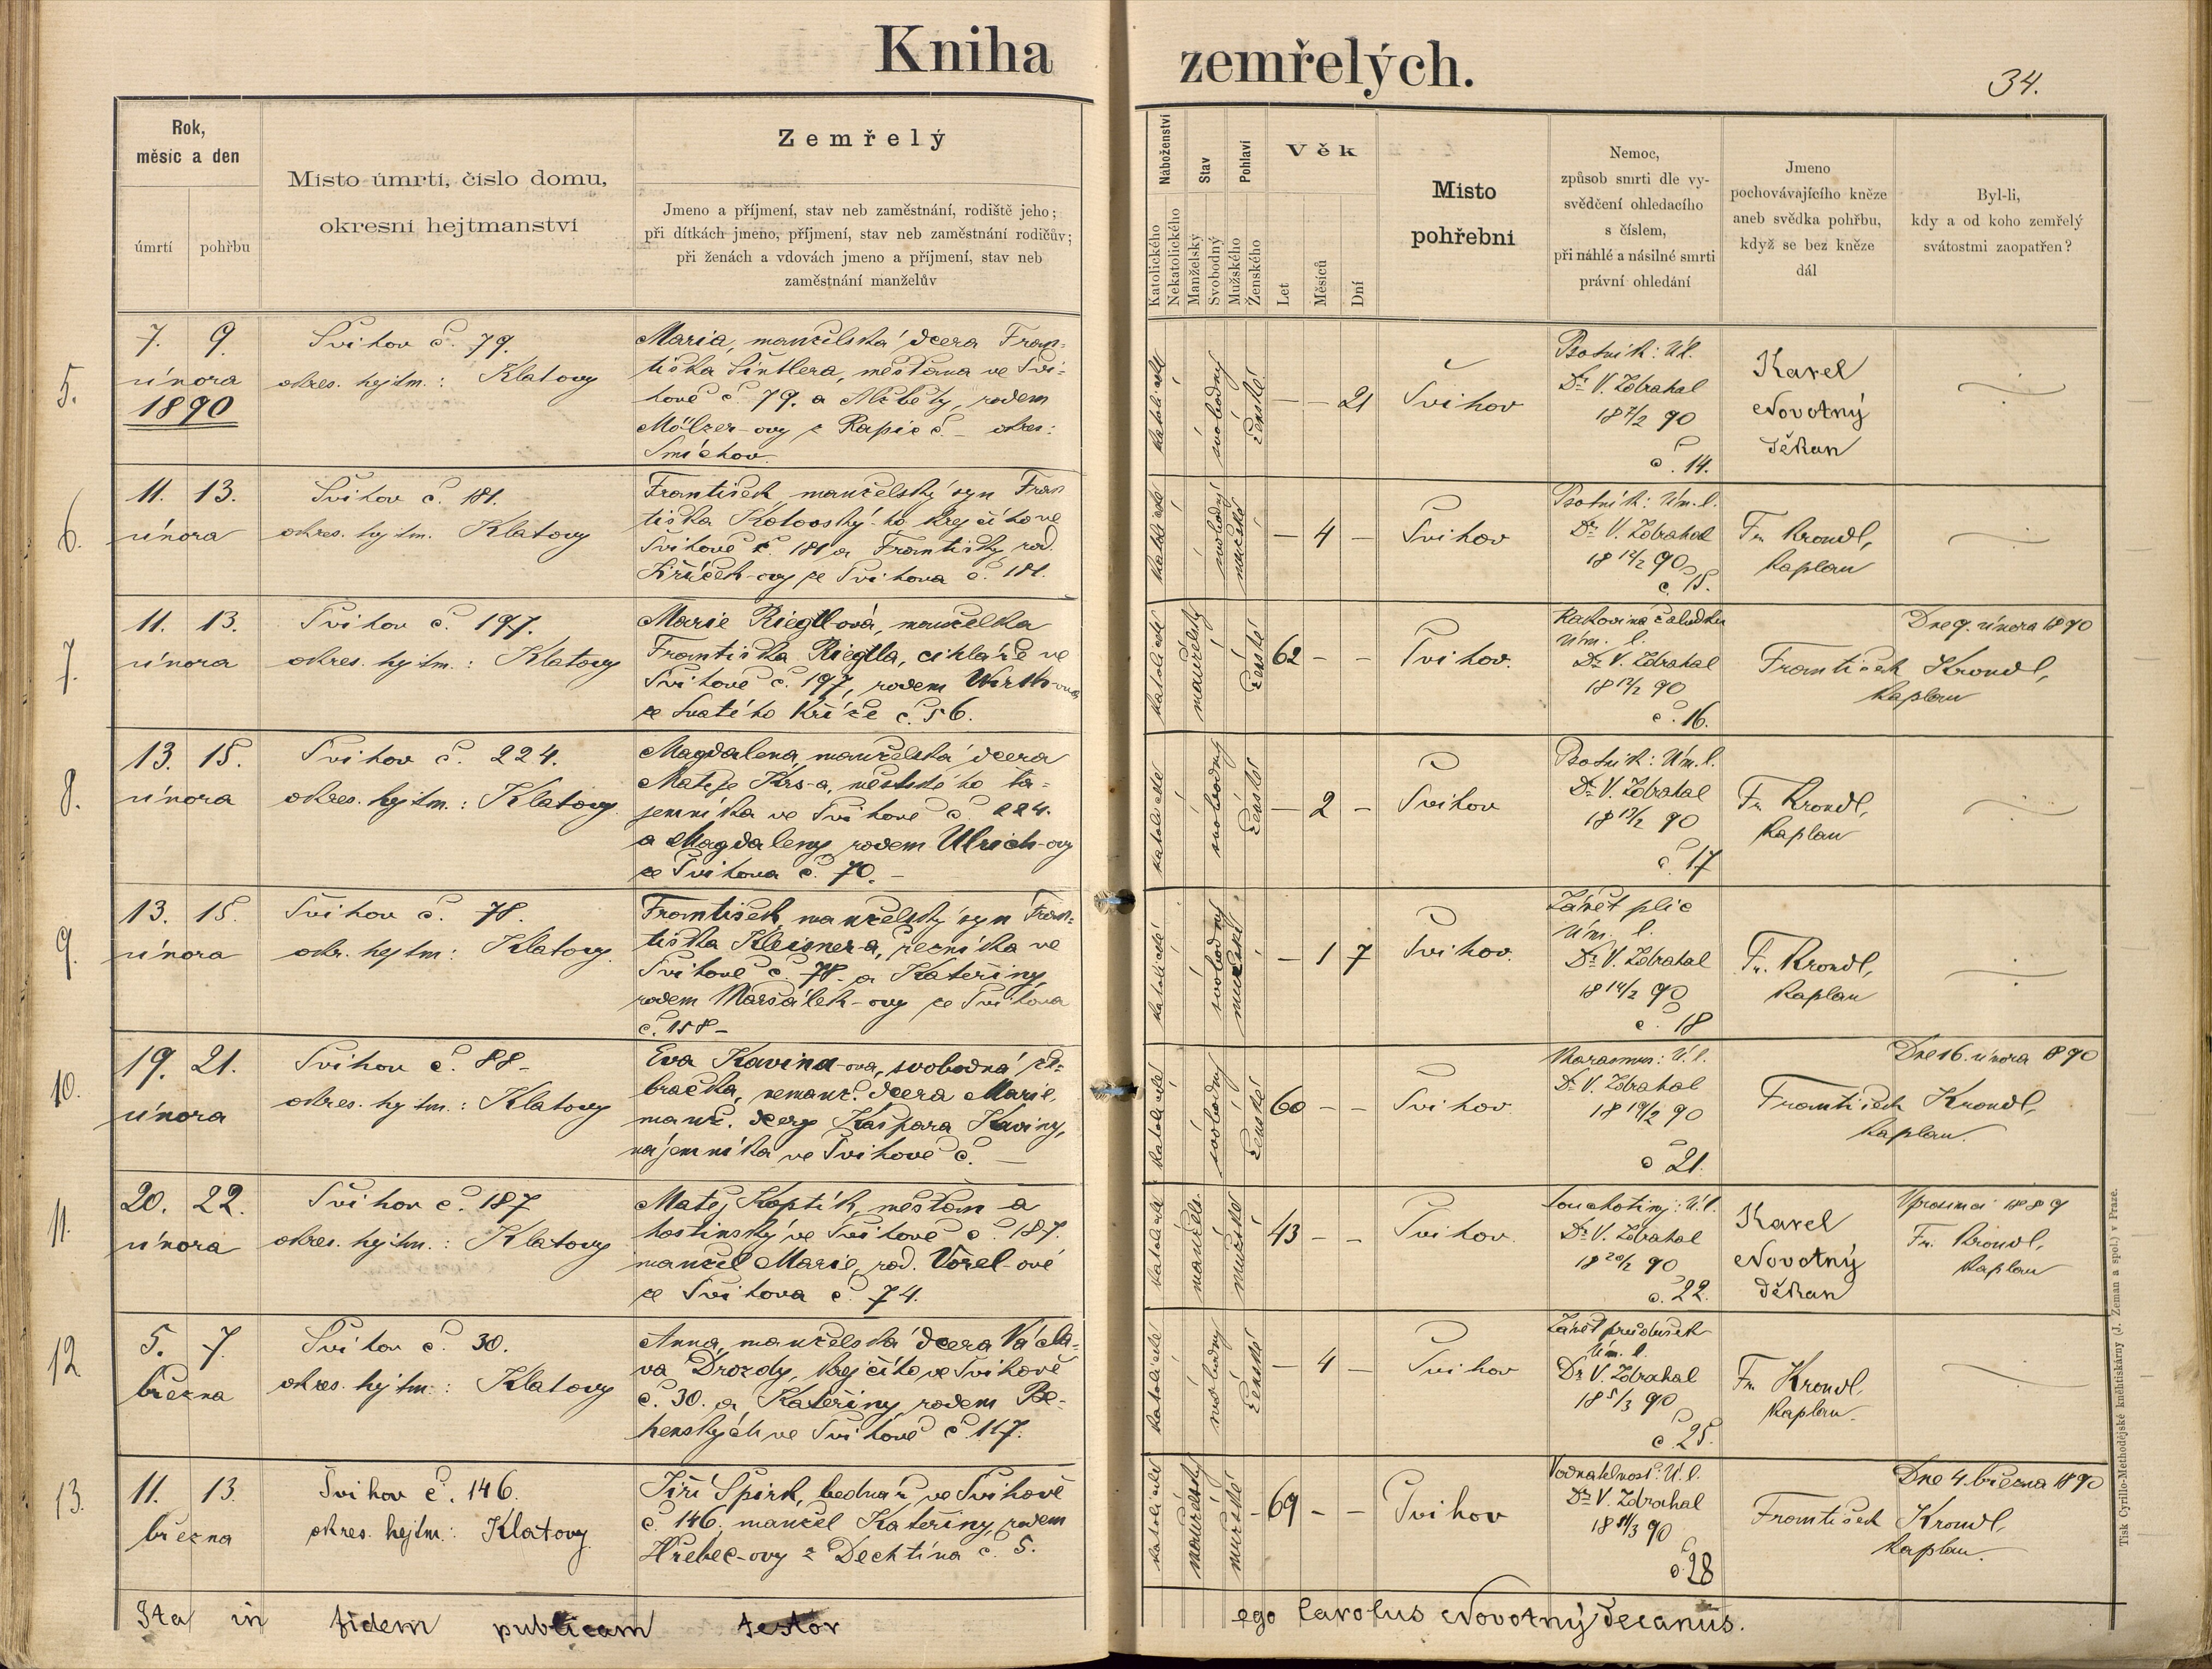 Kniha zemřelých.
34.
Rok,
měsíc a den
úmrtí pohřbu
Místo úmrtí, číslo domu,
okresní hejtmanství
Zemřelý
Jmeno a příjmení, stav neb zaměstnání, rodiště jeho;
při dítkách jmeno, příjmení, stav neb zaměstnání rodičův;
při ženách a vdovách jmeno a příjmení, stav neb
zaměstnání manželův
Náboženství
Katolického
Nekatolického
Stav
Manželský
Svobodný
Pohlaví
Mužského
Ženského
Věk
Let
Měsíců
Dní
Místo
pohřební
Nemoc,
způsob smrti dle vy-
svědčení ohledacího
s číslem,
při náhlé a násilné smrti
právní ohledání
Jmeno
pochovávajícího kněze
aneb svědka pohřbu,
když se bez kněze
dál
Byl-li,
kdy a od koho zemřelý
svátostmi zaopatřen?
5.
7. 9.
února
1890
Švihov č. 79.
okres. hejtm.: Klatovy
Maria, manželská dcera Fran-
tiška Šintlera, měšťana ve Švi-
hově č. 79. a Alžběty, rodem
Mölzer-ovy z Rapic č. – okres:
Smíchov.
katolické
svobodný
ženské
— — 21
Švihov
Psotník: Ú.l.
Dr V. Zdrahal
18 7/2 90
č. 14.
Karel
Novotný
děkan
6.
11. 13.
února
Švihov č. 181.
okres. hejtm. Klatovy
František, manželský syn Fran
tiška Kotovský-ho krejčího ve
Švihově č. 181 a Františky, rod.
Křížek-ovy ze Švihova č. 181.
katolické
svobodný
mužské
— 4 —
Švihov
Psotník: Úm. l.
Dr V. Zdrahal
18 12/2 90
č. 15.
Fr. Krondl,
kaplan
7.
11. 13.
února
Švihov č. 197.
okres. hejtm.: Klatovy
Marie Riegllová, manželka
Františka Rieglla, cihláře ve
Švihově č. 197, rodem Wirth-ova
ze Svatého Kříže č. 56.
katolické
manželský
ženské
62 – –
Švihov.
Rakovina žaludku
Úm. l.
Dr V. Zdrahal
18 12/2 90
č. 16.
Dne 9. února 1890
František Krondl,
kaplan
8.
13. 15.
února
Švihov č. 224.
okres. hejtm.: Klatovy.
Magdalena, manželská dcera
Matěje Krs-a, městského ta-
jemníka ve Švihově č. 224.
a Magdaleny, rodem Ulrich-ovy
ze Švihova č. 70. –
katolické
svobodný
ženské
— 2 –
Švihov
Psotník: Úm. l.
Dr V. Zdrahal
18 13/2 90
č. 17
Fr. Krondl,
kaplan
9.
13. 15.
února
Švihov č. 78.
okr. hejtm: Klatovy.
František, manželský syn Fran-
tiška Kleisner-a, řezníka ve
Švihově č. 78. a Kateřiny,
rodem Maršálek-ovy ze Švihova
č. 158 –
katolické
svobodný
mužské
— 1 7
Švihov.
Zánět plic
Úm. l.
Dr V. Zdrahal
18 14/2 90
č. 18
Fr. Krondl,
kaplan
10.
19. 21.
února
Švihov č. 88 –
okres. hejtm.: Klatovy
Eva Kavina-ova, svobodná že-
bračka, nemanž. dcera Marie,
manž. dcery Kašpara Kaviny,
nájemníka ve Švihově č. —
katolické
svobodný
ženské
60 – –
Švihov
Marasmus: Ú. l.
Dr V. Zdrahal
18 19/2 90
č. 21.
Dne 16. února 1890
František Krondl,
kaplan.
11.
20. 22.
února
Švihov č. 187
okres. hejtm.: Klatovy
Matěj Koptík, měšťan a
hostinský ve Švihově č. 187.
manžel Marie, rod. Vorel-ové
ze Švihova č. 74.
katolické
manžels.
mužské
43 – –
Švihov.
Souchotiny: Ú. l.
Dr V. Zdrahal
18 20/2 90
č. 22.
Karel
Novotný
děkan
V prosinci 1889
Fr. Krondl,
kaplan
12
5. 7.
března
Švihov č. 30.
okres. hejtm.: Klatovy
Anna, manželská dcera Václa-
va Drozdy, krejčího ve Švihově
č. 30. a Kateřiny, rodem Be-
henských ve Švihově č. 117.
katolické
svobodný
ženské
— 4 —
Švihov
Zánět průdušek
Úm. l.
Dr V. Zdrahal
18 5/3 90
č. 25.
Fr. Krondl,
kaplan.
13.
11. 13.
března
Švihov č. 146.
okres. hejtm.: Klatovy.
Jiří Špirk, bednář ve Švihově
č. 146. manžel Kateřiny, rodem
Hřebec-ovy z Dechtína č. 5.
katolické
manželský
mužské
69 – –
Švihov
Vodnatelnost: Ú. l.
Dr V. Zdrahal
18 11/3 90
č. 28
Dne 4. března 1890
František Krondl,
kaplan.
Ita in fidem publicam testor ego Carolus Novotný decanus.
Tisk Cyrillo-Methodějské knihtiskárny (J. Zeman a spol.) v Praze.